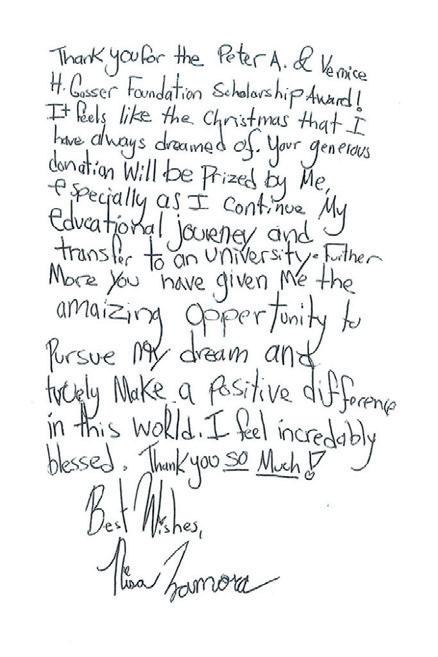 Thank you for the Peter A. & Vernice
H. Gosser Foundation Scholarship Award!
It feels like the Christmas that I
have always dreamed of. Your generous
donation will be Prized by Me,
especially as I continue My
educational journey and
transfer to an university. Further
More you have given Me the
amaizing opportunity to
Pursue My dream and
truely Make a Positive difference
in this world. I feel incredably
blessed. Thank you so Much!
Best Wishes,
Zamora